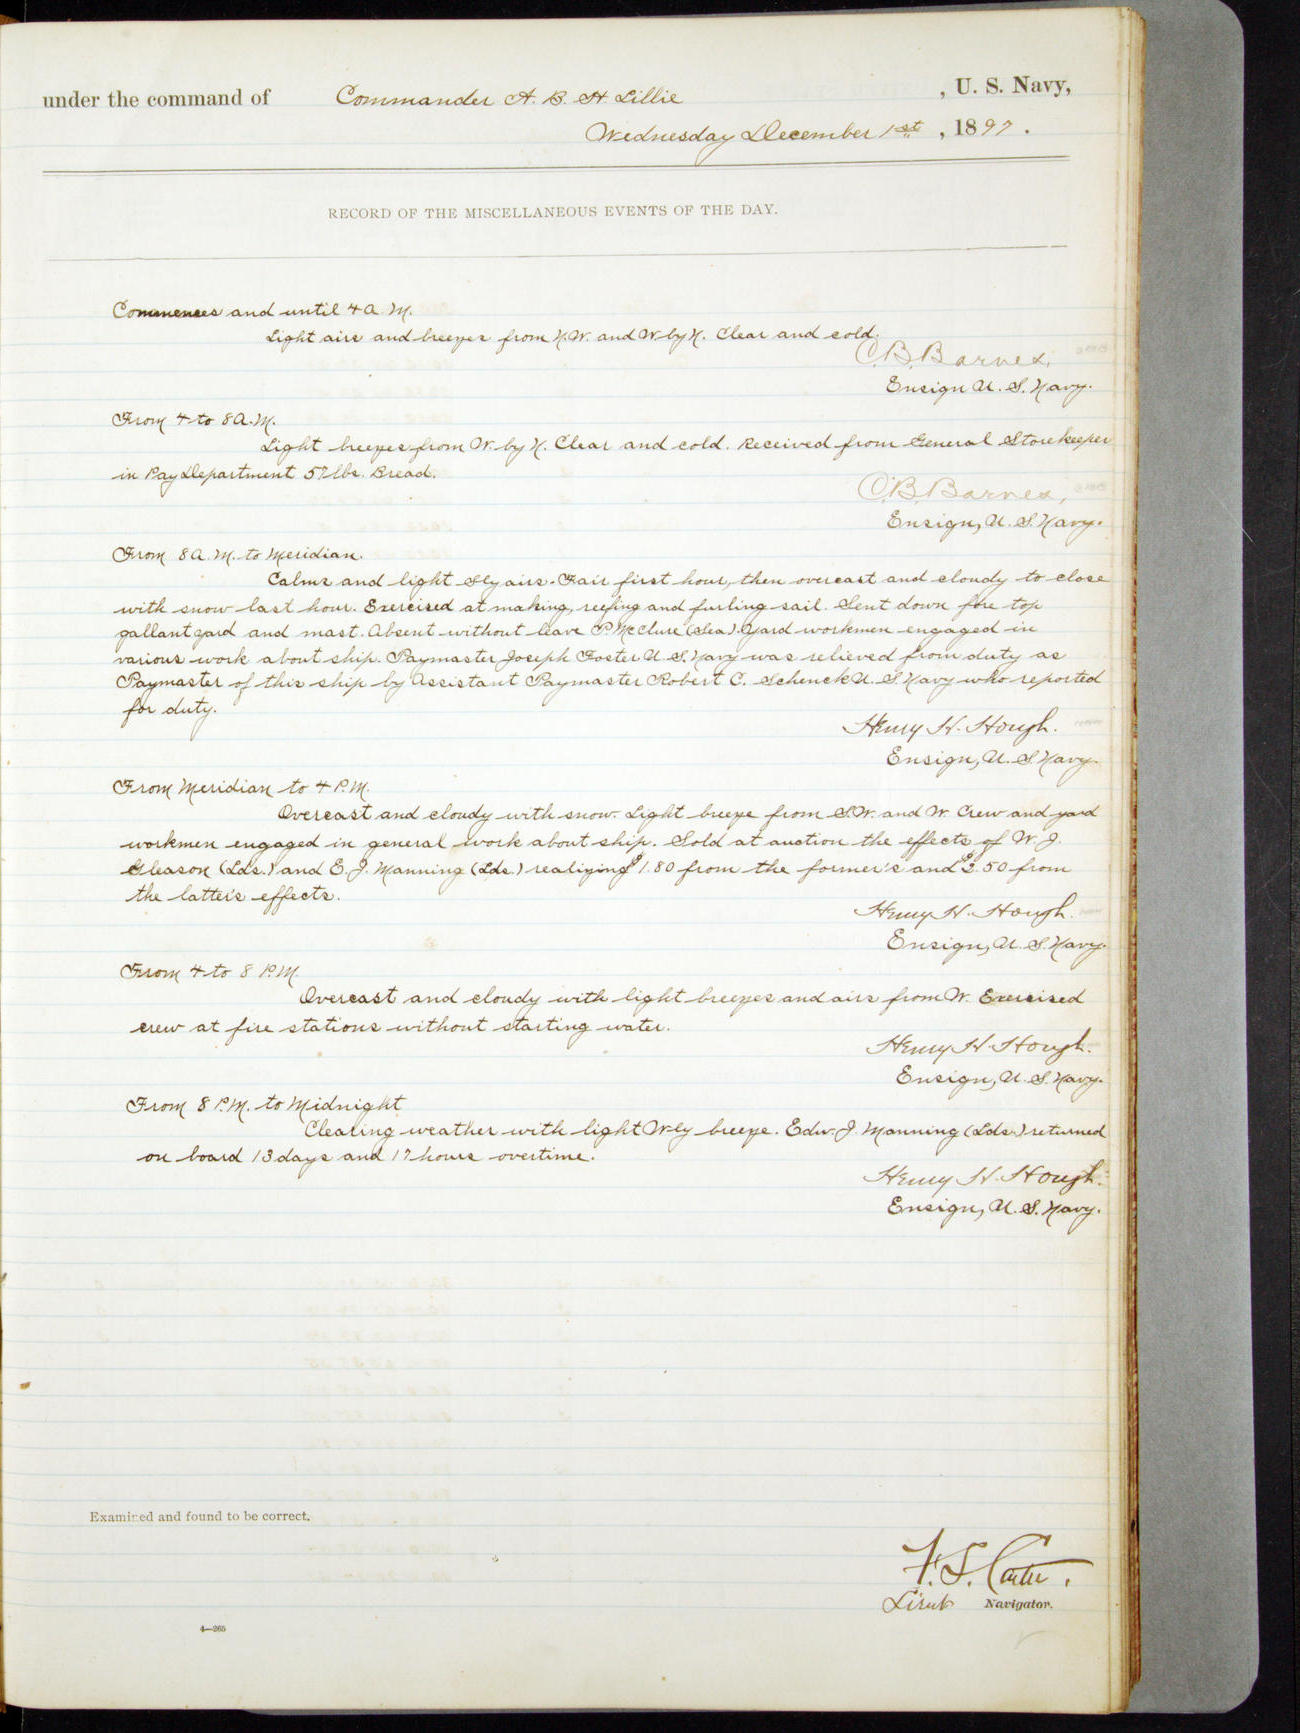 under the command of Commander A. B. H Lillie , U. S. Navy,
Wednesday December 1st , 1897 .
RECORD OF THE MISCELLANEOUS EVENTS OF THE DAY.
Commences and until 4 A. M.
Light airs and breezes from N.W. and W by N. Clear and cold.
C. B. Barnes,
Ensign U. S. Navy.
From 4 to 8 A.M.
Light breezes from W. by N. Clear and cold. Received from General Storekeeper
in Pay Department 57 lbs. Bread.
C. B. Barnes,
Ensign, U. S. Navy.
From 8 A. M. to Meridian.
Calms and light Sly airs. Fair first hour, then overcast and cloudy to close
with snow last hour. Exercised at making, reefing and furling sail. Sent down fore top
gallant yard and mast. Absent without leave P. McClure (Sea). Yard workmen engaged in
various work about ship. Paymaster Joseph Foster U. S. Navy was relieved from duty as
Paymaster of this ship by Assistant Paymaster Robert C. Schenck U. S. Navy who reported
for duty.
Henry H. Hough.
Ensign, U. S. Navy.
From Meridian to 4 P.M.
Overcast and cloudy with snow. Light breeze from S.W. and W. Crew and yard
workmen engaged in general work about ship. Sold at auction the effects of W. J.
Gleason (Lds.) and E. J. Manning (Lds.) realizing $1.80 from the former's and $2.50 from
the latter's effects.
Henry H. Hough.
Ensign, U. S. Navy.
From 4 to 8 P.M.
Overcast and cloudy with light breezes and airs from W. Exercised
crew at fire stations without starting water.
Henry H. Hough.
Ensign, U. S. Navy.
From 8 P.M. to Midnight
Clearing weather with light W-ly breeze. Edw. J. Manning (Lds.) returned
on board 13 days and 17 hours overtime.
Henry H. Hough.
Ensign, U. S. Navy.
Examined and found to be correct.
F. S. Carter.
Lieut Navigator.
4—265